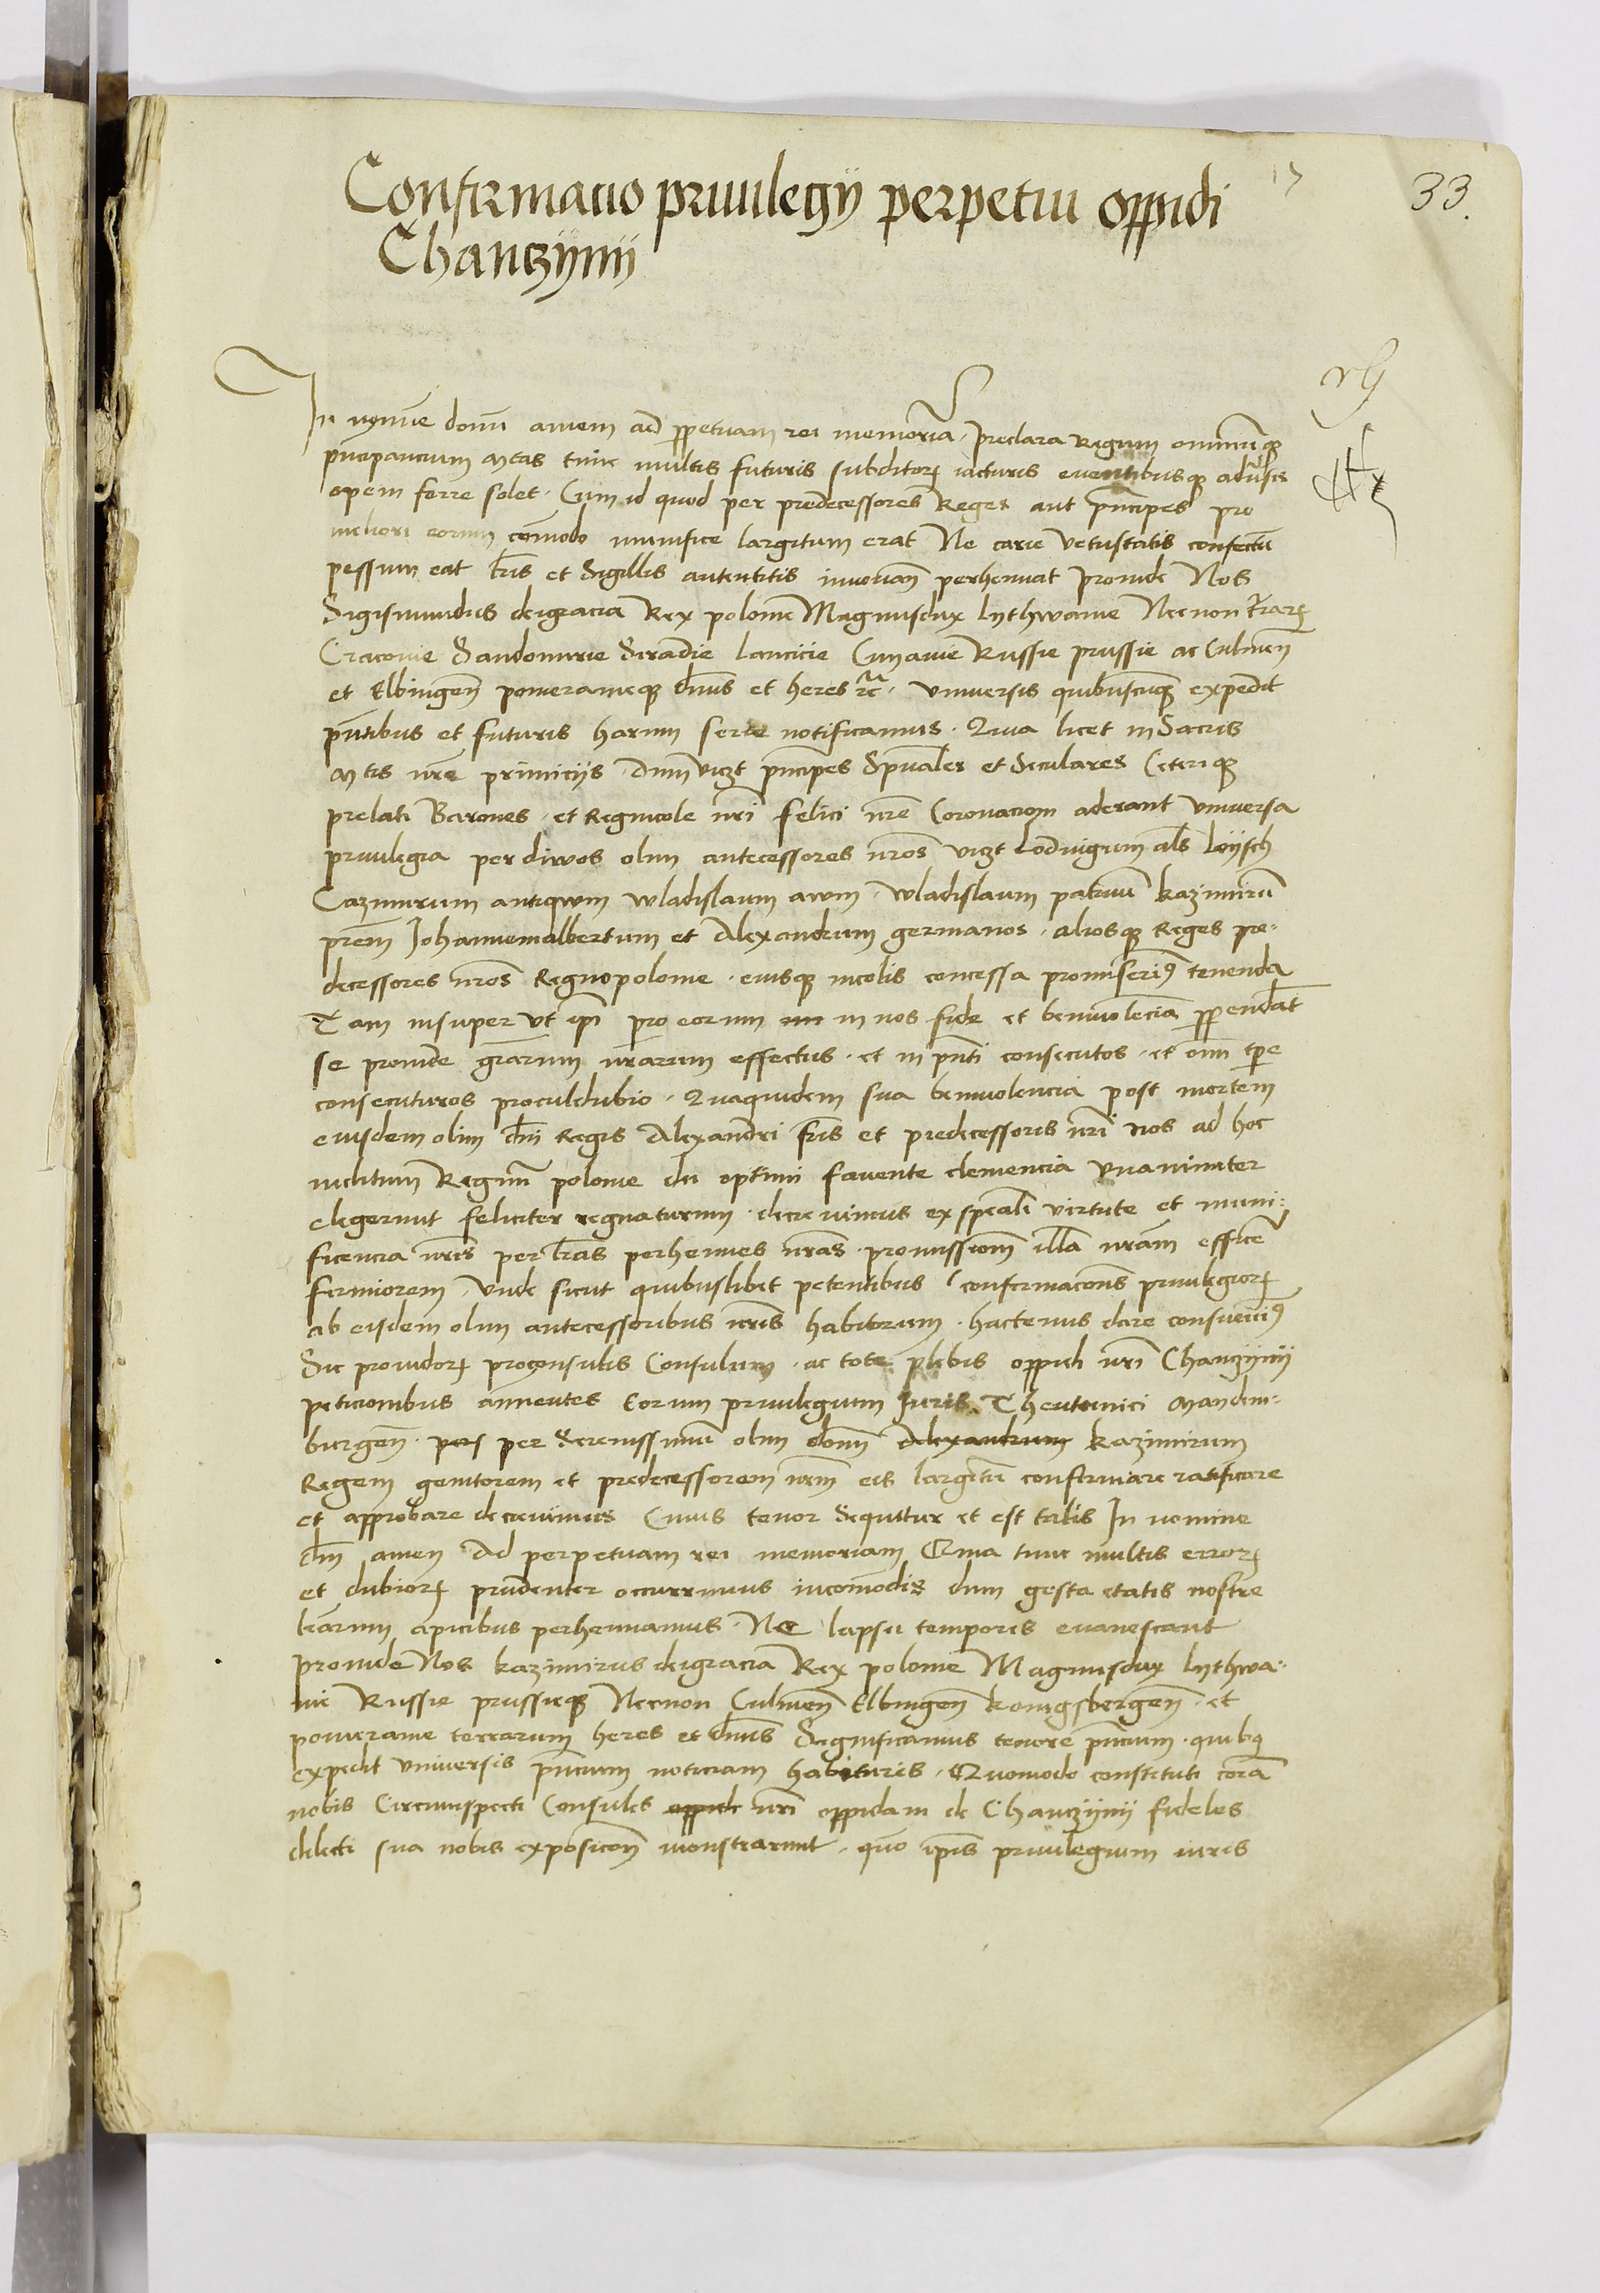 Confirmacio priuilegÿ perpetui oppidi
Chanczÿnÿ
33.
In noīe domī amen ad ppetuam rei memoriā. Preclara Regum omniūqƺ
principancium Mtas tunc multis futuris subditorꝝ iacturis euentibusqƺ aduersis
opem ferre solet. Cum id quod per predecessores Reges aut principes pro
meliori eorum cōmodo munifice largitum erat Ne carie vetustatis confectū
pessum eat lr̄is et Sigillis autentitis perhennat Proinde Nos
Sigismundus deigracia Rex polonie Magnusdux lythwanie Necnon tr̄arꝝ
Cracouie Sandomirie Siradie lancicie Cuyauie Russie prussie ac Culmen̄
et Elbingen̄ pomeranieqƺ dn̄us et heres ꝛc̄. vniuersis quibuscūqƺ expedit
pn̄tibus et futuris harum serie notificamus. Quia licet in Sacris
Mtis nr̄e primicijs. Dum viczt prīncipes Spūales et Seculares Ceteriqƺ
prelati Barones. et Regnicole nr̄i felici nr̄e Coronaciom̄ aderant vniuersa
priuilegia per diwos olim antecessores nr̄os viczt lodwigum al̄s loÿsch
Cazimirum antiqwm wladislaum awm. wladislaum patruū kazimirū
prēm Johannemalbertum et Alexandrum germanos. aliosqƺ Reges pre-
decessores nr̄os Regnopolonie. eiusqƺ incolis concessa promiserimꝯ tenenda
Tam insuper vt ip̄i pro eorum in nos fide et beniuolēcia ppendāt
se proinde gr̄arum nr̄arum effectus. et in pn̄ti consecutos. et om̄i tp̄e
consecuturos proculdubio. Quaquidem sua beniuolencia post mortem
eiusdem olim dn̄i Regis Alexandri fr̄is et predecessoris nr̄i nos ad hoc
inclitum Regnū polonie dei optimi fauente clemencia vnanimiter
elegerunt feliciter regnaturum. decreuimus ex speciali virtute et muni-
ficencia nr̄is per lr̄as perhennes nr̄as. promissionem illā nr̄am efficē
firmiorem. Vnde sicut quibuslibet petentibus confirmacōnes priuilegiorꝝ
ab eisdem olim antecessoribus nr̄is habitorum. hactenus dare consueuimꝯ
Sic prouidorꝝ proconsulis Consulum. ac tote plebis oppidi nr̄i Chanczÿnÿ
peticionibus annuentes Eorum priuilegium Juris Theutunici Mandem-
burgen̄. per Serenissimū olim dom̄ Alexandrum kazimirum
Regem genitorem et predecessorem nr̄m eis largitū confirmare ratificare
et approbare decreuimus Cuius tenor sequitur et est talis In nomine
dn̄i amen Ad perpetuam rei memoriam Quia tunc multis errorꝝ
et dubiorꝝ prudenter occurrimus incomodis dum gesta etatis nostre
lr̄arum apicibus perhennamus. Ne lapsu temporis euanescant
Proinde Nos kazimirus deigracia Rex polonie Magnusdux lythwa-
nie Russie prussieqƺ Necnon Culmen̄ Elbingen̄ konigsbergen̄. et
pomeranie terrarum heres et dn̄us Significamus tenore pn̄cium. quibꝯ
expedit vniuersis pn̄cium noticiam habituris. Quomodo constituti corā
nobis Circumspecti Consules oppidi nr̄i oppidani de Chanczÿnÿ fideles
dilecti sua nobis exposicōn̄ monstrarunt. quō ip̄is priuilegium iuris